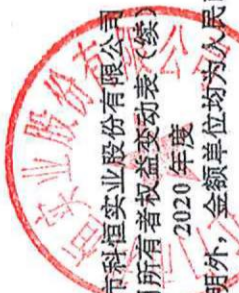 市科恒实业股份有限公司
所有者权益变动表(续)
2020 年度
明外，金额单位均为人民
恒实业股份有限公